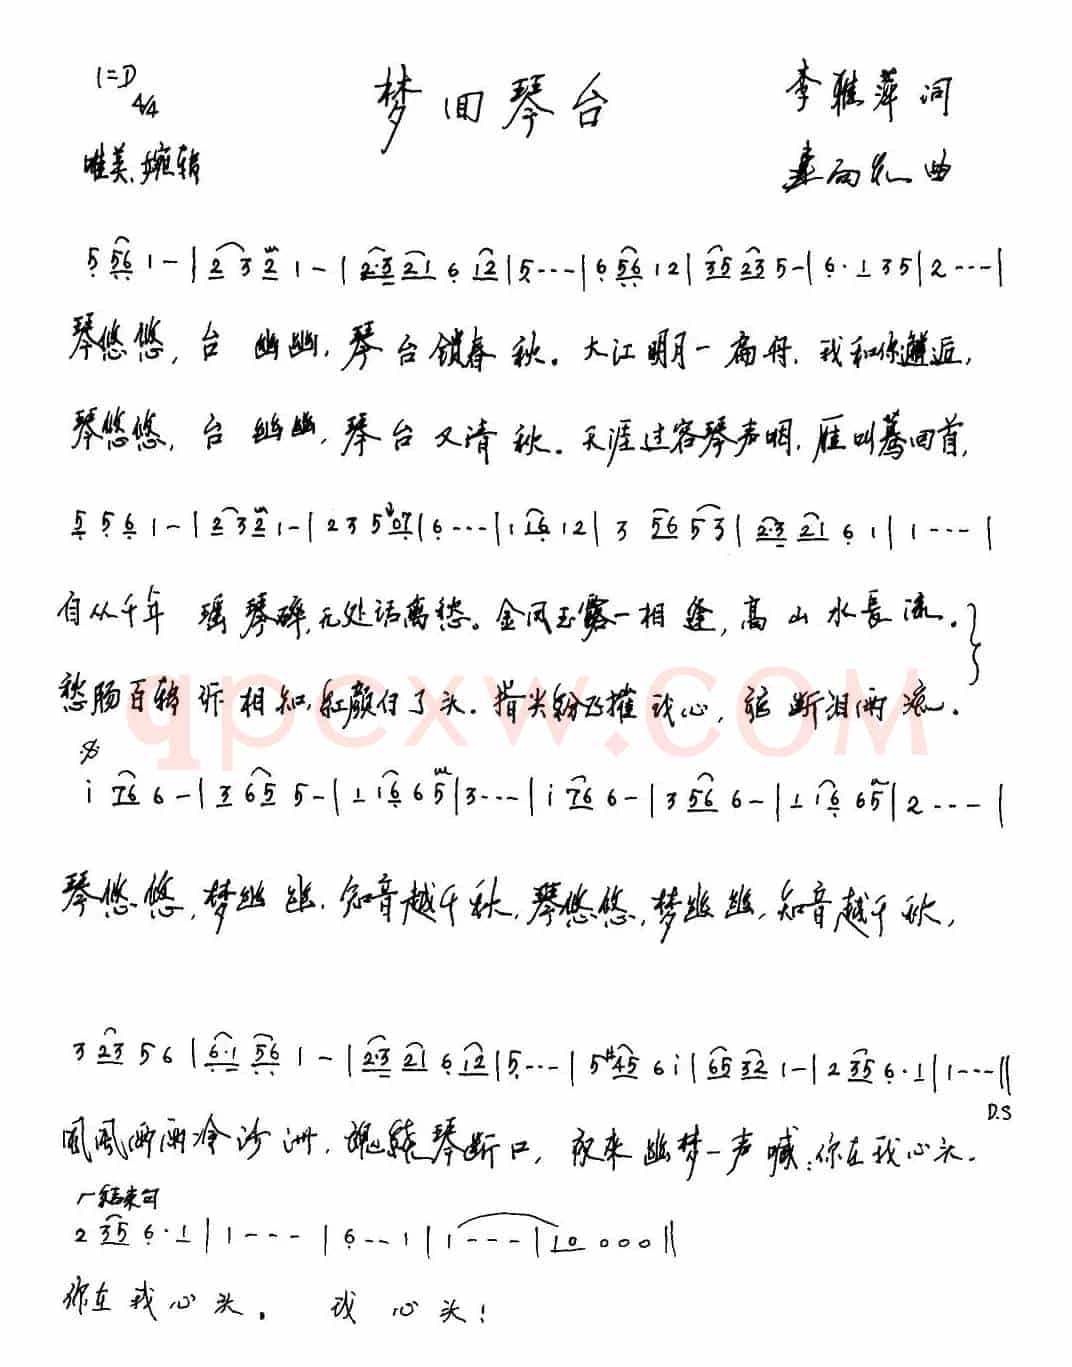 1=D
4/4
梦回琴台
李雅萍词
唯美、婉转
雨花曲
5 56 1 - | 2 3 2 1 - | 2·3 21 6 12 | 5 - - - | 6 56 1 2 | 35 23 5 - | 6 · 1 3 5 | 2 - - - |
琴悠悠,台幽幽,琴台锁春秋。大江明月一高舟,我和你邂逅,
琴悠悠,台幽幽,琴台又清秋。天涯过客琴声咽,雁叫蓦回首,
5 5 6 1 - | 2 3 2 1 - | 2 3 5 07 | 6 - - - | 1 16 1 2 | 3 56 5 3 | 2·3 21 6 1 | 1 - - - |
自从千年瑶琴碎,无处话离愁。金风玉露一相逢,高山水長流。
愁肠百转诉相知,红颜付了头。指尖纷飞摧我心,弦断泪两流。
qpcxw.com
i 76 6 - | 3 65 5 - | 1 i6 6 5 | 3 - - - | i 76 6 - | 3 56 6 - | 1 i6 65 | 2 - - - |
琴悠悠,梦幽幽,知音越千秋,琴悠悠,梦幽幽,知音越千秋,
3 23 5 6 | 6·1 56 1 - | 2·3 21 6 12 | 5 - - - | 5 #45 6 i | 65 32 1 - | 2 35 6 · 1 | 1 - - - ||
D.S
风风雨雨冷沙洲,魂绕琴断口,夜来幽梦一声喊:你在我心头。
结束句
2 35 6 · 1 | 1 - - - | 6 - - 1 | 1 - - - | 10 0 0 0 ||
你在我心头。我心头!